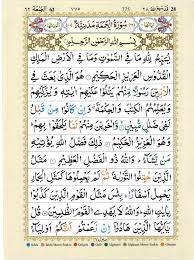 28
775
سُوْرَةُ الْجُمُعَةِ مَدَنِيَّةٌ
بِسْمِ اللّٰهِ الرَّحْمٰنِ الرَّحِيْمِ
يُسَبِّحُ لِلّٰهِ مَا فِي السَّمٰوٰتِ وَمَا فِي الْاَرْضِ الْمَلِكِ
الْقُدُّوْسِ الْعَزِيْزِ الْحَكِيْمِ هُوَ الَّذِيْ بَعَثَ فِي الْاُمِّيّٖنَ
رَسُوْلًا مِّنْهُمْ يَتْلُوْا عَلَيْهِمْ اٰيٰتِهٖ وَيُزَكِّيْهِمْ وَيُعَلِّمُهُمُ
الْكِتٰبَ وَالْحِكْمَةَ وَاِنْ كَانُوْا مِنْ قَبْلُ
لَفِيْ ضَلٰلٍ مُّبِيْنٍ وَّاٰخَرِيْنَ مِنْهُمْ لَمَّا يَلْحَقُوْا بِهِمْ
وَهُوَ الْعَزِيْزُ الْحَكِيْمُ ذٰلِكَ فَضْلُ اللّٰهِ يُؤْتِيْهِ مَنْ
يَّشَآءُ وَاللّٰهُ ذُو الْفَضْلِ الْعَظِيْمِ مَثَلُ
الَّذِيْنَ حُمِّلُوا التَّوْرٰىةَ ثُمَّ لَمْ يَحْمِلُوْهَا كَمَثَلِ الْحِمَارِ
يَحْمِلُ اَسْفَارًا بِئْسَ مَثَلُ الْقَوْمِ الَّذِيْنَ
كَذَّبُوْا بِاٰيٰتِ اللّٰهِ وَاللّٰهُ لَا يَهْدِي الْقَوْمَ الظّٰلِمِيْنَ
قُلْ يٰٓاَيُّهَا الَّذِيْنَ هَادُوْٓا اِنْ زَعَمْتُمْ اَنَّكُمْ اَوْلِيَآءُ